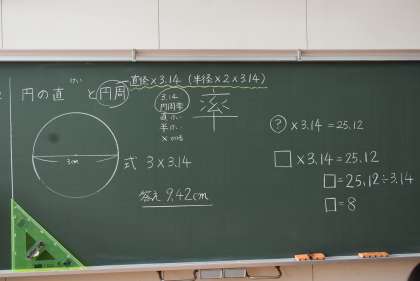 直径×3.14 (半径×2×3.14)
円の直けい と 円周
3.14
円周率
率
3cm
式 3×3.14
答え 9.42cm
? ×3.14=25.12
□×3.14=25.12
□=25.12÷3.14
□=8